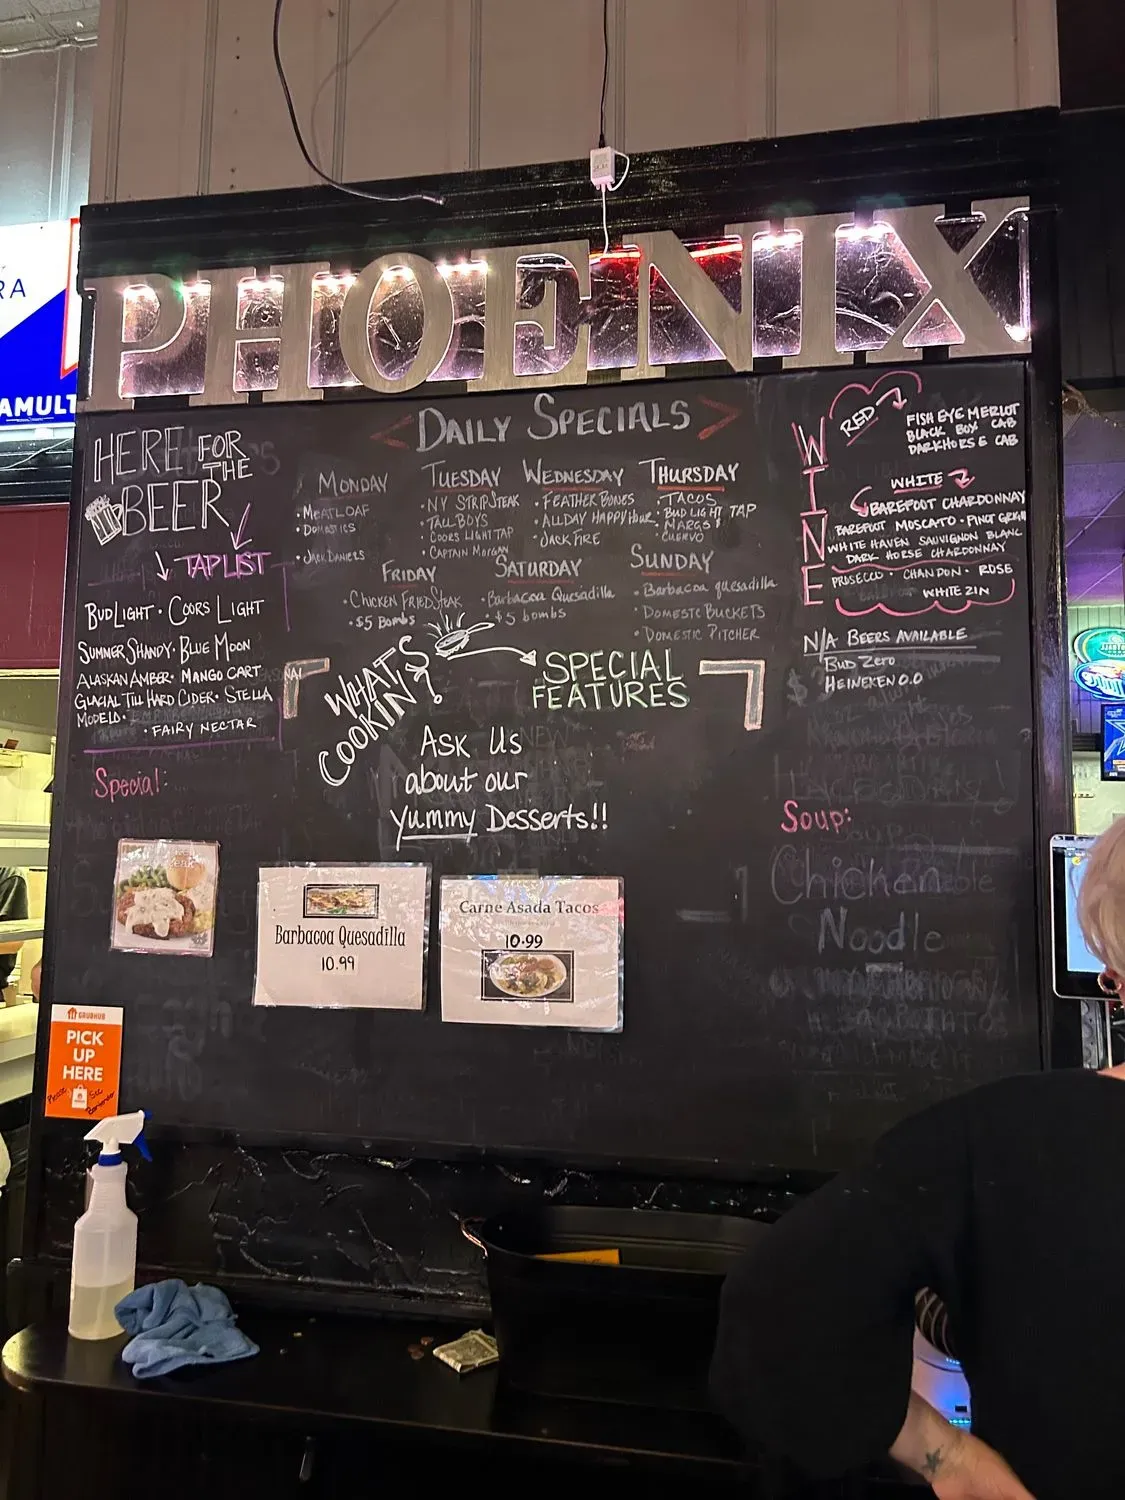 PHOENIX
RA
AMULT
HERE FOR
THE
BEER
TAPLIST
BUDLIGHT · COORS LIGHT
SUMMER SHANDY · BLUE MOON
ALASKAN AMBER · MANGO CART
GLACIAL TILL HARD CIDER · STELLA
MODELO ·
· FAIRY NECTAR
Special:
DAILY SPECIALS
MONDAY
· MEATLOAF
· DOMESTICS
· JACK DANIELS
TUESDAY
· NY STRIP STEAK
· TALL BOYS
· COORS LIGHT TAP
· CAPTAIN MORGAN
WEDNESDAY
· FEATHER BONES
· ALLDAY HAPPY HOUR
· JACK FIRE
THURSDAY
· TACOS
· BUD LIGHT TAP
· MARGS
· CUERVO
FRIDAY
· CHICKEN FRIED STEAK
· $5 BOMBS
SATURDAY
· Barbacoa Quesadilla
$5 bombs
SUNDAY
· Barbacoa quesadilla
· DOMESTIC BUCKETS
· DOMESTIC PITCHER
WHAT'S
COOKIN'?
SPECIAL
FEATURES
ASK US
about our
yummy Desserts!!
WINE
RED
FISH EYE MERLOT
BLACK BOX CAB
DARKHORSE CAB
WHITE
BAREFOOT CHARDONNAY
BAREFOOT MOSCATO · PINOT GRIGIO
WHITE HAVEN SAUVIGNON BLANC
DARK HORSE CHARDONNAY
PROSECCO · CHANDON · ROSE
WHITE ZIN
N/A BEERS AVAILABLE
BUD ZERO
HEINEKEN 0.0
Soup:
Chicken
Noodle
Barbacoa Quesadilla
10.99
Carne Asada Tacos
10.99
GRUBHUB
PICK
UP
HERE
Please See
Bartender